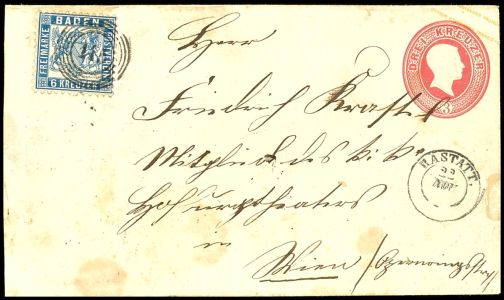 BADEN
FREIMARKE
POSTVEREIN
6 KREUZER
DREI KREUZER
3
Herr
Friedrich Krastel
Mitglied des k. k.
Hofburgtheaters
in
Wien
RASTATT.
22